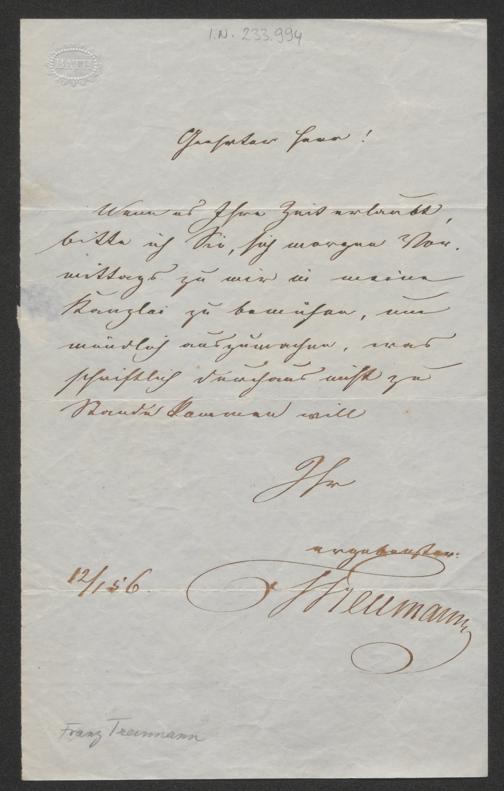 I.N. 233.994
BATH
Geehrter Herr!
Wenn es Ihre Zeit erlaubt,
bitte ich Sie, sich morgen Vor-
mittags zu mir in meine
Kanzlei zu bemühen, um
mündlich auszumachen, was
schriftlich durchaus nicht zu
Stande kommen will
Ihr
ergebenster
12/1 56.
Treumann
Franz Treumann